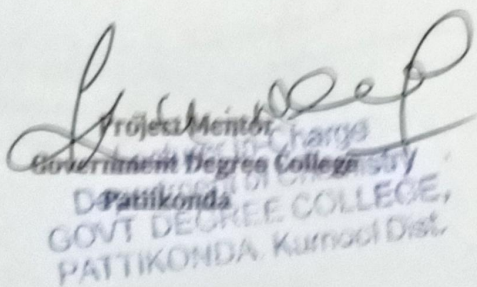 Project Mentor
Government Degree College
Pattikonda
In-Charge
Department of Chemistry
GOVT DEGREE COLLEGE,
PATTIKONDA. Kurnool Dist.